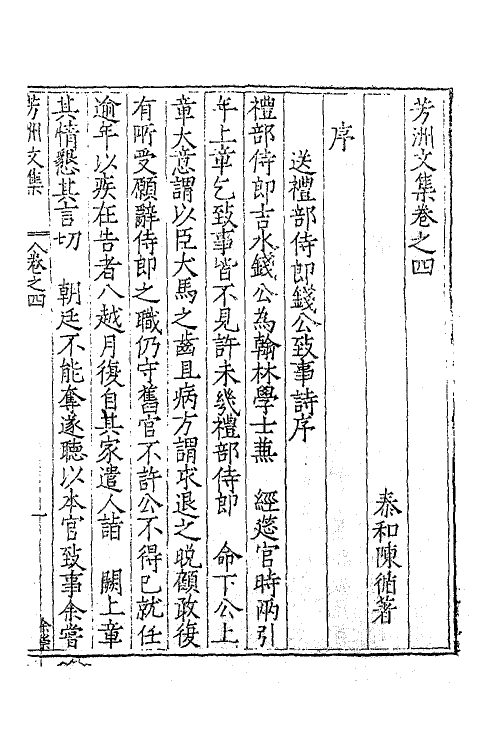 芳洲文集卷之四
泰和陳循著
序
送禮部侍郎錢公致事詩序
禮部侍郎吉水錢公為翰林學士兼　經筵官時兩引
年上章乞致事皆不見許未幾禮部侍郎　命下公上
章大意謂以臣犬馬之齒且病方謂求退之晚顧政復
有所受願辭侍郎之職仍守舊官不許公不得已就任
逾年以疾在告者八越月復自其家遣人詣　闕上章
其情懇其言切　朝廷不能奪遂聽以本官致事余嘗
芳洲文集　卷之四　一